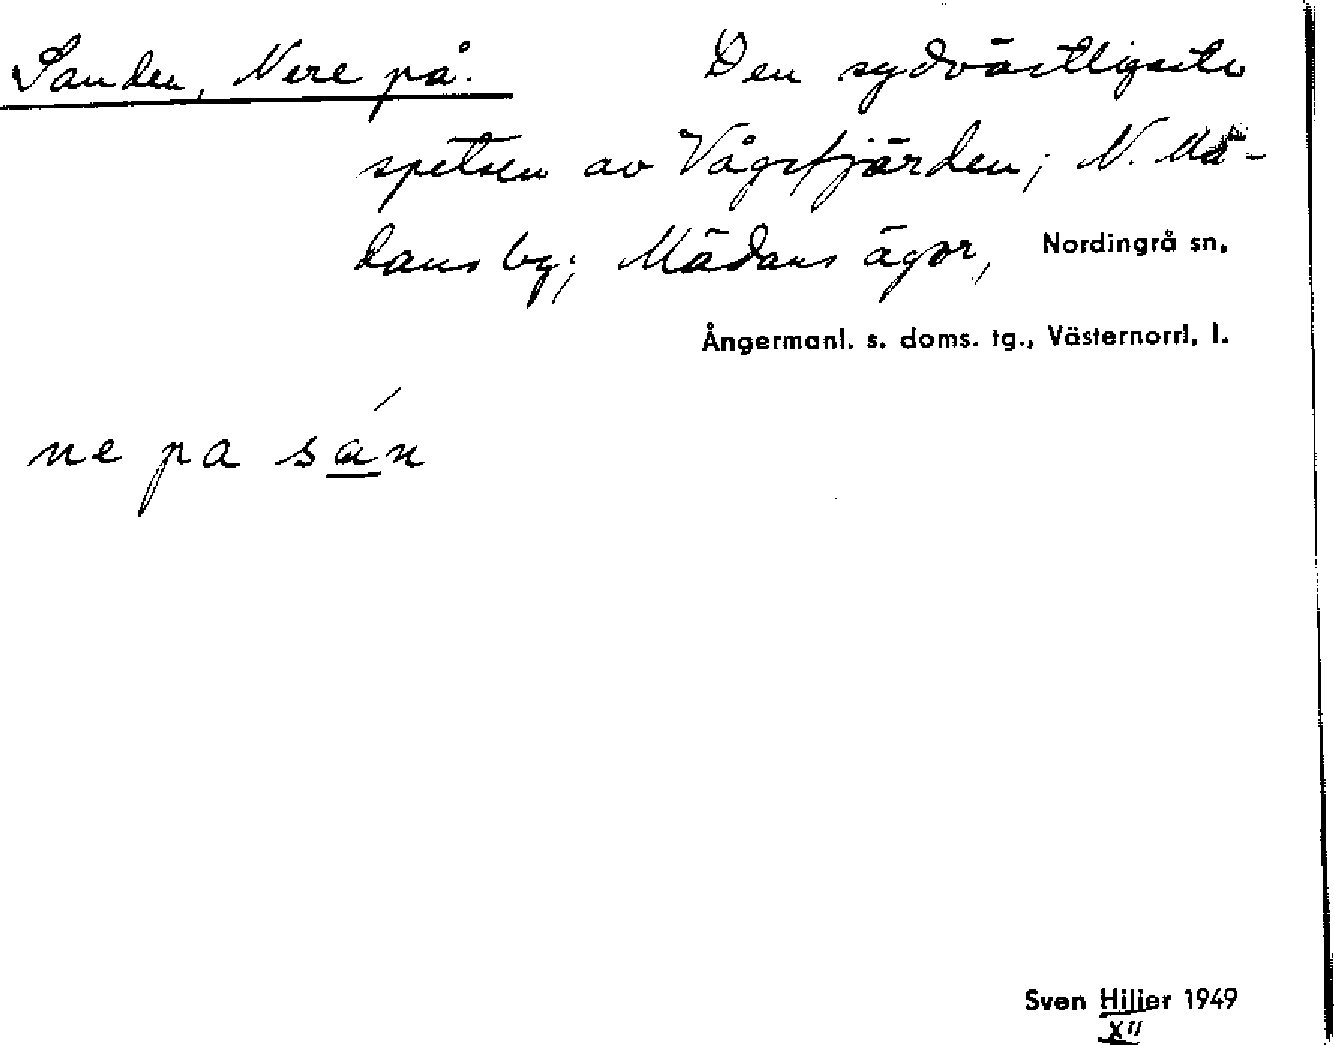 Sanden, Nere på. Den sydvästligaste
spetsen av Vågsfjärden; N. Mä-
dans by; Mädans ägor, Nordingrå sn,
Ångermanl. s. doms. tg., Västernorrl. l.
ne pa sán
Sven Hiljer 1949
XII